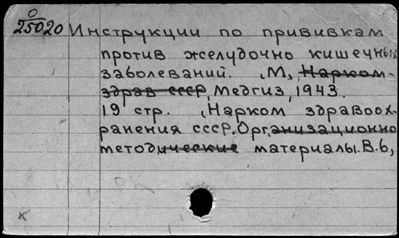 О
25020 Инструкции по прививкам
против желудочно кишечных
заболеваний. М, Нарком-
здрав ссср, Медгиз, 1943.
19 стр. (Нарком здравоох-
ранения ссср. Организационно
методические материалы. В. 6,